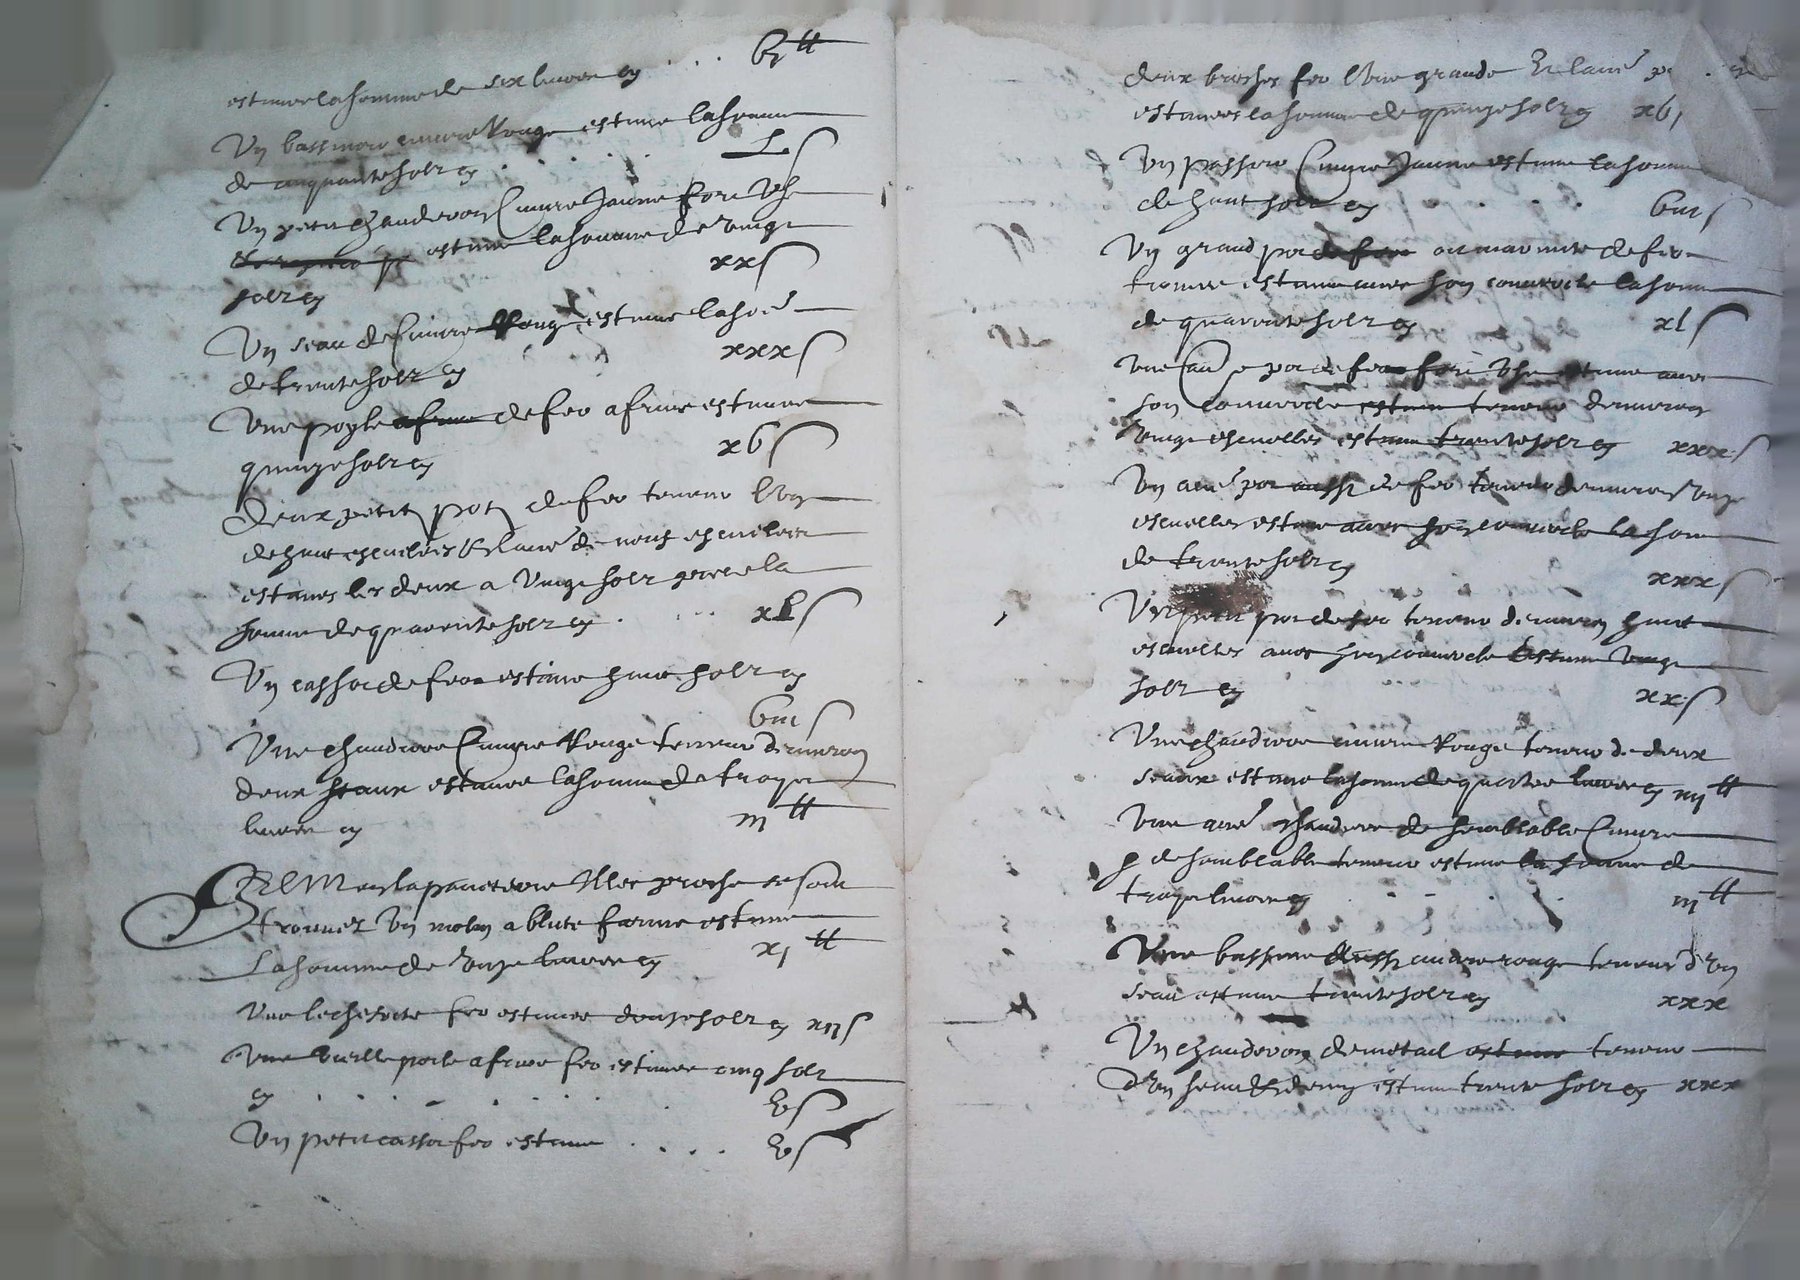 vj tt
estimee la somme de six livres cy
Un bassin cuivre Rouge estime la somme
de cinquante solz cy L s
Un petit chauderon Cuivre Jaune fort Usé
estime la somme de vingt
solz cy xx s
Un seau de Cuivre Rouge estime la som
de trente solz cy xxx s
Une poyle de fer a frire estimee
quinze solz cy xv s
Deux petitz potz de fer teneur l'Un
de huit escuelles & l'autre de neuf escuelles
estimes les deux a Vingt solz piece la
somme de quarente solz cy xl s
Un casset de fer estime huit solz cy
viii s
Une chaudiere Cuivre Rouge teneur d'environ
deux seaux estimee la somme de troys
livres cy iij tt
ITEM en la paneterie illec proche se sont
trouvez Un molin a bluter farine estime
La somme de Unze livres cy xj tt
Une lichefrite fer estimee douze solz cy xij s
Une vieille poile a frire fer estimee cinq solz
cy v s
Un petit casset fer estime v s
deux broches fer l'Une grande & l'autre
estimees la somme de quinze solz cy xv
Un passoir Cuivre Jaune estime la somme
de huit solz cy viii s
Un grand pot de fer ou marmite de fer
trouvee estimee avec son couvercle la somme
de quarente solz cy xl s
Une au pot de fer fort Usé estime avec
son Couvercle teneur d'environ
Vingt escuelles estime trente solz cy xxx s
Un autre pot aussy de fer teneur d'environ Vingt
escuelles estime avec son couvercle la som
de trente solz cy xxx s
Un petit pot de fer teneur d'environ huit
escuelles avec son couvercle estime Vingt
solz cy xx s
Une chaudiere cuivre Rouge teneur de deux
seaux estimee la somme de quatre livres cy iiij tt
Une autre chaudiere de semblable Cuivre
& de semblable teneur estimee la somme de
troys livres cy iij tt
Une bassine aussy cuivre rouge teneur d'Un
seau estimee trente solz cy xxx
Un chauderon de metail teneur
d'Un seau & demy estime trente solz cy xxx